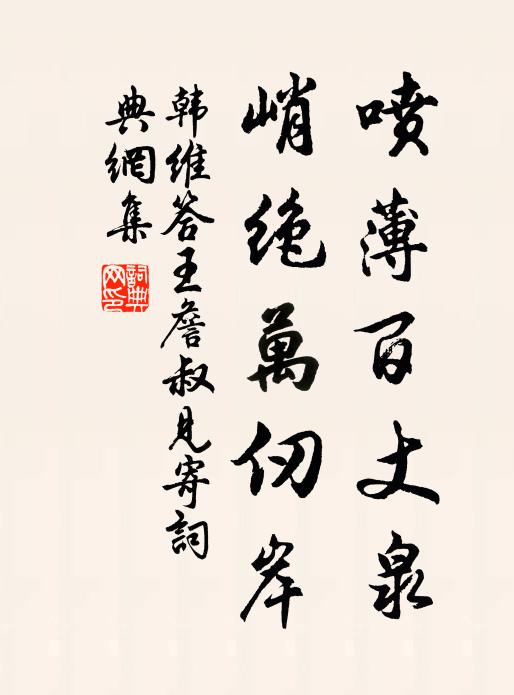 喷薄百丈泉
峭绝萬仞岸
韩维答王詹叔見寄詞
典網集
詞典
网印